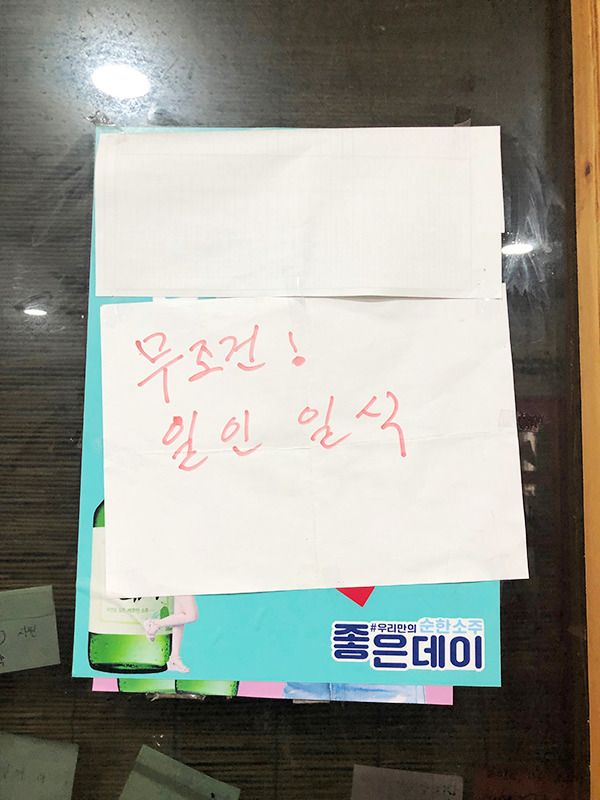 무조건!
일인 일식
#우리만의 순한소주
좋은데이